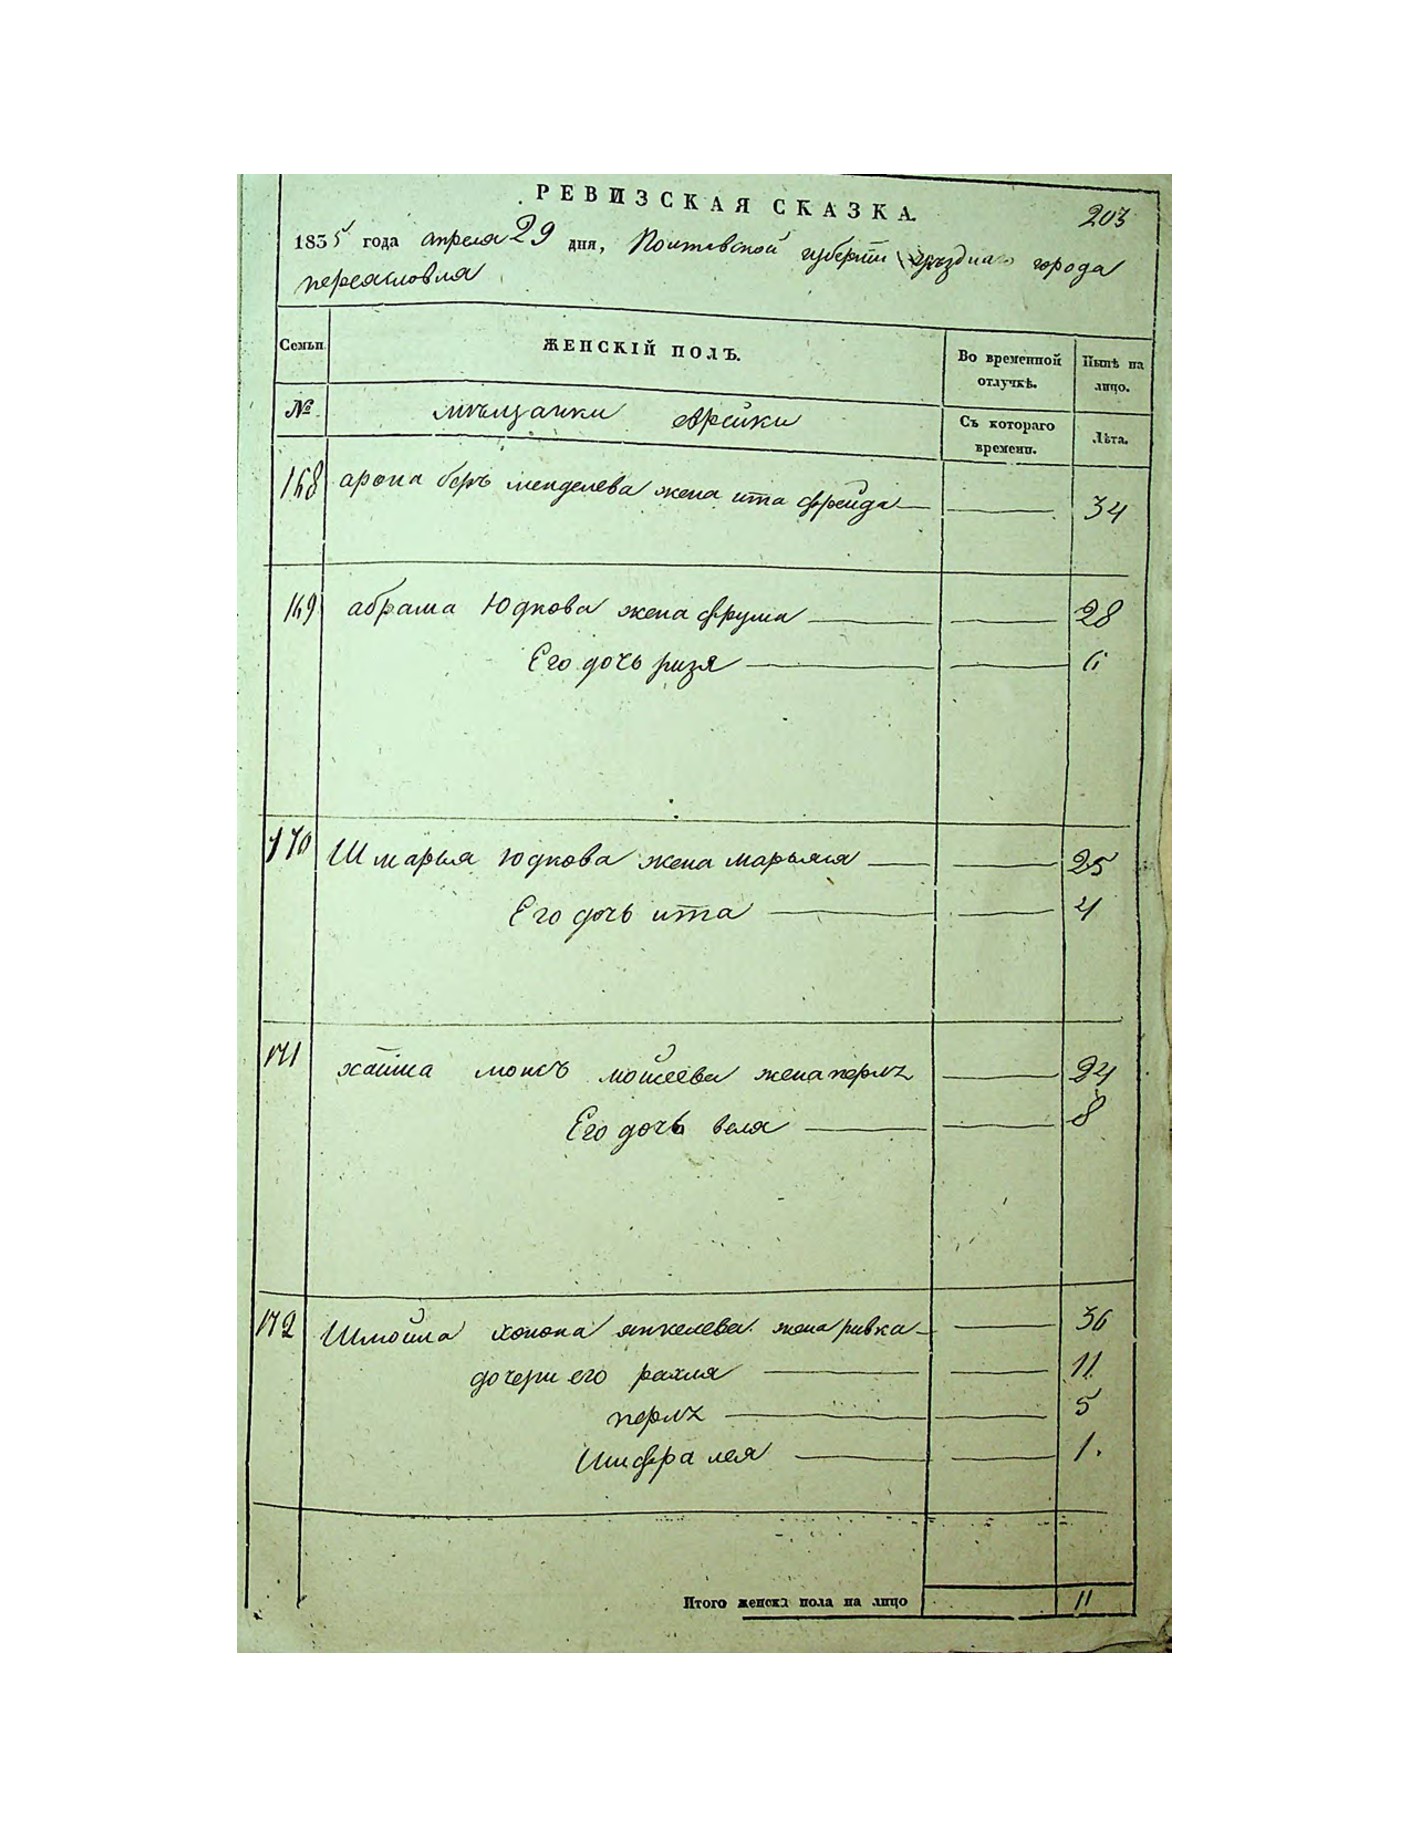 РЕВИЗСКАЯ СКАЗКА.
203
1835 года апреля 29 дня, Полтавской губернии уѣзднаго города
переяславля
Семьи
ЖЕНСКІЙ ПОЛЪ.
Во временной отлучкѣ.
Нынѣ на лицо.
№
мѣщанки еврейки
Съ котораго времени.
Лѣта.
168 арона беръ менделева жена ита фрейда 34
169 абрама Юдкова жена фрума 28
Его дочь ризя 6
170 Шмарыя Юдкова жена марьяся 25
Его дочь ита 4
171 хаима моисъ мойсеева жена перлъ 24
Его дочь беля 8
172 Шмойла хонона янкелева жена ривка 36
дочери его рахля 11
перлъ 5
Шифра лея 1.
Итого женска пола на лицо 11